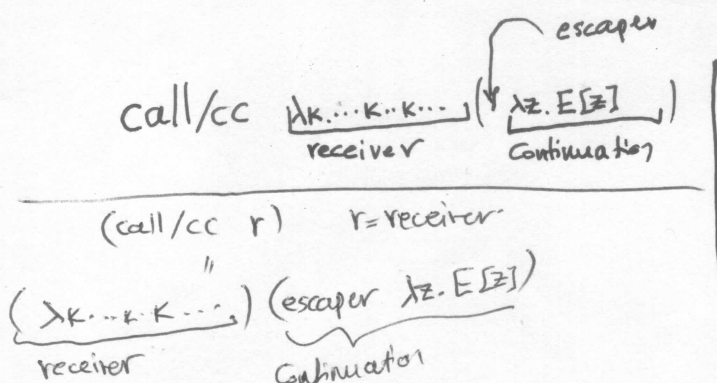 escaper
call/cc λκ.…κ..κ… ( λz. E[z] )
receiver continuation
(call/cc r) r = receiver
"
( λκ.…κ. κ…. ) (escaper λz. E[z])
receiver Continuation